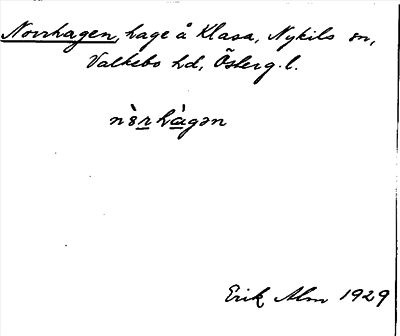 Norrhagen, hage å Klasa, Nykils sn,
Valkebo hd, Österg. l.
Erik Alm 1929